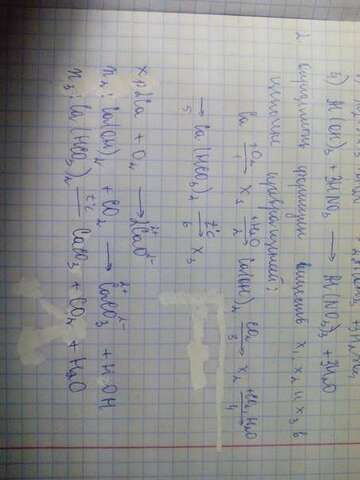 3) Al(OH)₃ + 3HNO₃ ⟶ Al(NO₃)₃ + 3H₂O
2. формулы веществ x₁, x₂ и x₃ в
цепочке превращений:
Ca +O₂→ 1 x₁ +H₂O→ 2 Ca(OH)₂ CO₂→ 3 x₂ +CO₂, H₂O→ 4
→ 5 Ca(HCO₃)₂ t°C→ 6 x₃
x₁: 2Ca + O₂ ⟶ 2Ca²⁺O²⁻
x₂: Ca(OH)₂ + CO₂ ⟶ Ca²⁺CO₃²⁻ + HOH
x₃: Ca(HCO₃)₂ t°C CaCO₃ + CO₂ + H₂O